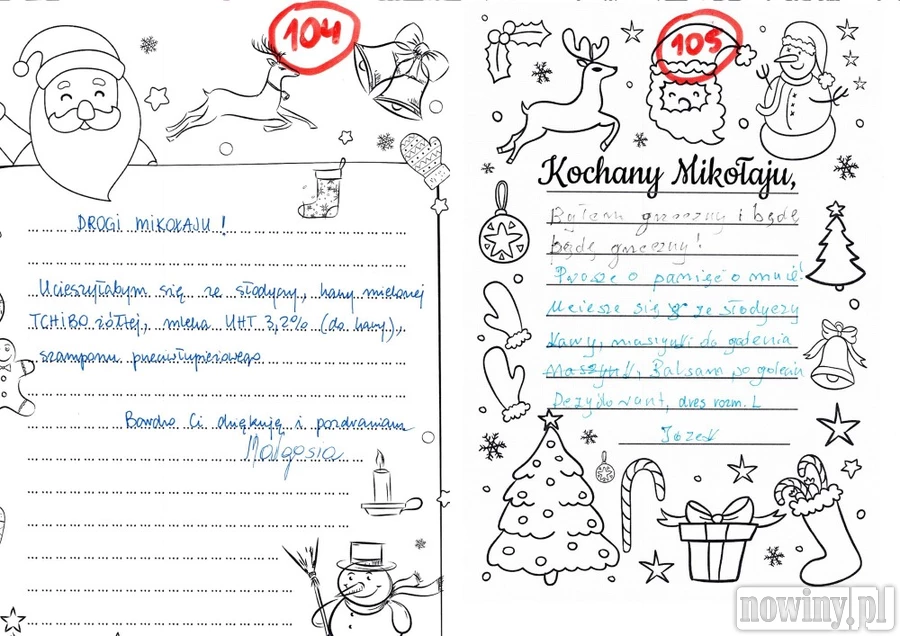 104
DROGI MIKOŁAJU!
Ucieszyłabym się ze słodyczy, kawy mielonej
TCHIBO żółtej, mleka UHT 3,2% (do kawy),
szamponu przeciwłupieżowego
Bardzo Ci dziękuję i pozdrawiam
Małgosia
105
Kochany Mikołaju,
Byłem grzeczny i będę
będę grzeczny!
Proszę o pamięć o mnie!
Ucieszę się z ze słodyczy
Kawy, maszynki do golenia
Maszynki, Balsam po goleniu
Dezydorant, dres rozm. L
Józek
nowiny.pl